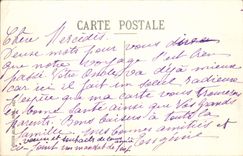 CARTE POSTALE
Chère Mercédès
Deux mots pour vous dire
que notre voyage s'est bien
passé Votre Oncle va déjà mieux
car ici il fait un soleil radieux
J'espère que ma carte vous trouvera
en bonne santé ainsi que vos grands
Parents. Bons baisers à toute la
famille. mes bonnes amitiés et